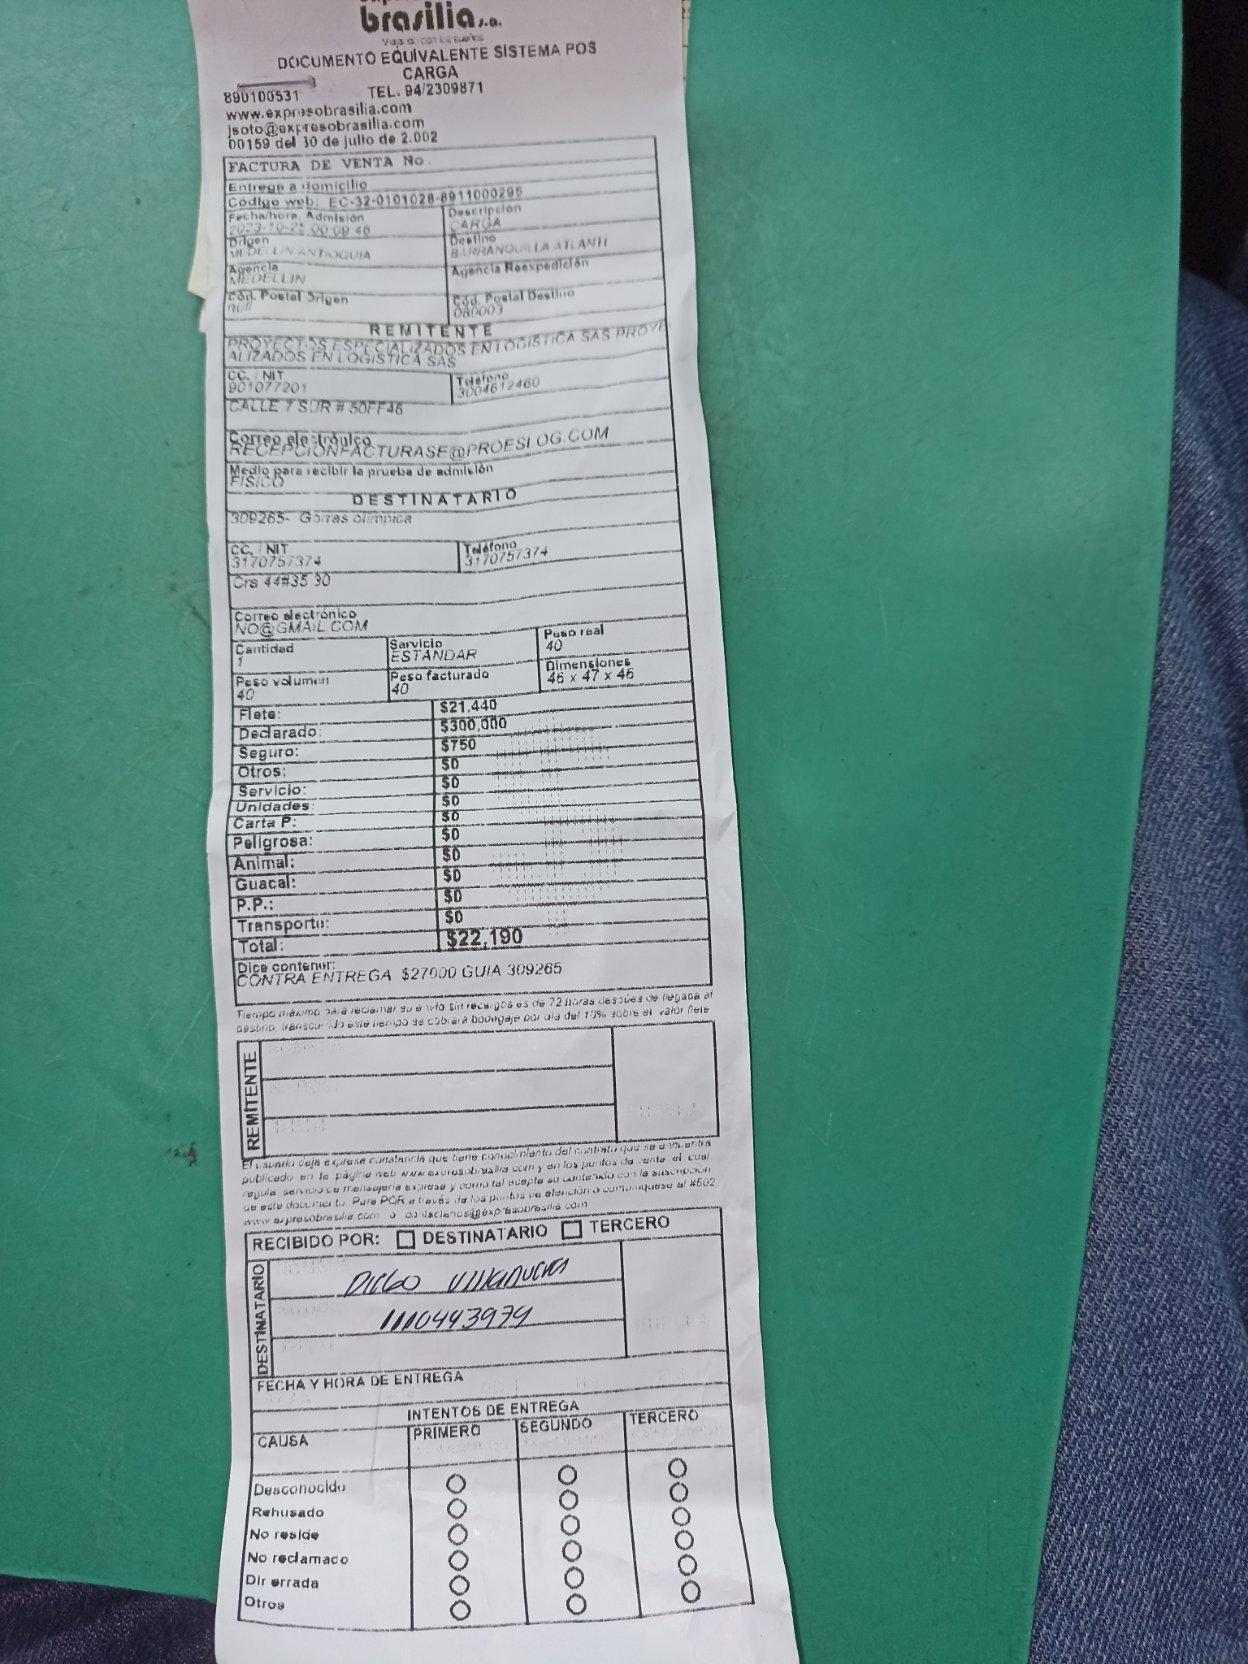 brasilia s.a.
DOCUMENTO EQUIVALENTE SISTEMA POS
CARGA
890100531 TEL. 94/2309871
www.expresobrasilia.com
jsoto@expresobrasilia.com
00159 del 30 de julio de 2.002
FACTURA DE VENTA No.
Entrega a domicilio
Código web: EC-32-0101028-8911000295
Fecha/hora. Admisión Descripción
CARGA
Origen Destino
MEDELLIN ANTIOQUIA BARRANQUILLA ATLANTI
Agencia Agencia Reexpedición
MEDELLIN
Cód. Postal Origen Cód. Postal Destino
null 080003
REMITENTE
PROYECTOS ESPECIALIZADOS EN LOGISTICA SAS PROYE
ALIZADOS EN LOGISTICA SAS
CC. / NIT Teléfono
901077201 3004612460
CALLE 7 SUR # 50FF46
Correo electrónico
RECEPCIONFACTURASE@PROESLOG.COM
Medio para recibir la prueba de admisión
FISICO
DESTINATARIO
309265- Gorras olimpica
CC. / NIT Teléfono
3170757374 3170757374
Cra 44#35 30
Correo electrónico
NO@GMAIL.COM
Cantidad Servicio Peso real
1 ESTANDAR 40
Peso volumen Peso facturado Dimensiones
40 40 46 x 47 x 46
Flete: $21,440
Declarado: $300,000
Seguro: $750
Otros: $0
Servicio: $0
Unidades: $0
Carta P: $0
Peligrosa: $0
Animal: $0
Guacal: $0
P.P.: $0
Transporte: $0
Total: $22,190
Dice contener:
CONTRA ENTREGA $27000 GUIA 309265
Tiempo máximo para reclamar su envío sin recargos es de 72 horas después de llegada al
destino, transcurrido este tiempo se cobrará bodegaje por día del 10% sobre el valor flete
REMITENTE
El usuario deja expresa constancia que tiene conocimiento del contrato que se encuentra
publicado en la página web www.expresobrasilia.com y en los puntos de venta el cual
regula servicio de mensajería expresa y como tal acepta su contenido con la suscripción
de este documento. Para PQR a través de los puntos de atención o comuníquese al #502,
www.expresobrasilia.com o contactenos@expresobrasilia.com
RECIBIDO POR: DESTINATARIO TERCERO
DESTINATARIO
Diego Villanueva
1110443974
FECHA Y HORA DE ENTREGA
INTENTOS DE ENTREGA
CAUSA PRIMERO SEGUNDO TERCERO
Desconocido
Rehusado
No reside
No reclamado
Dir errada
Otros